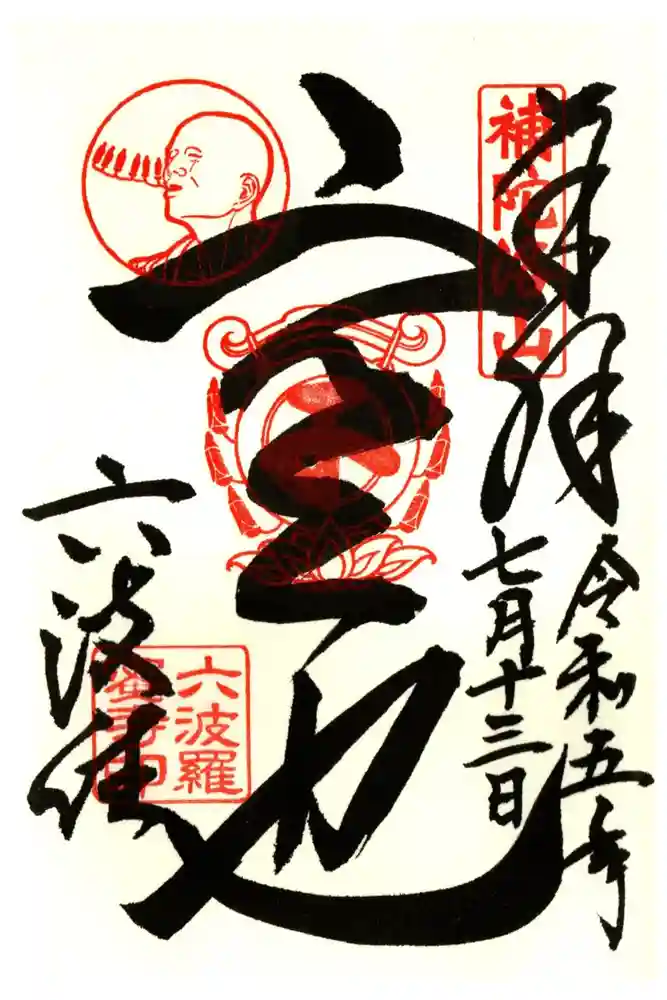 奉拝
補陀洛山
令和五年
七月十三日
空也
六波羅
六波羅
蜜寺印